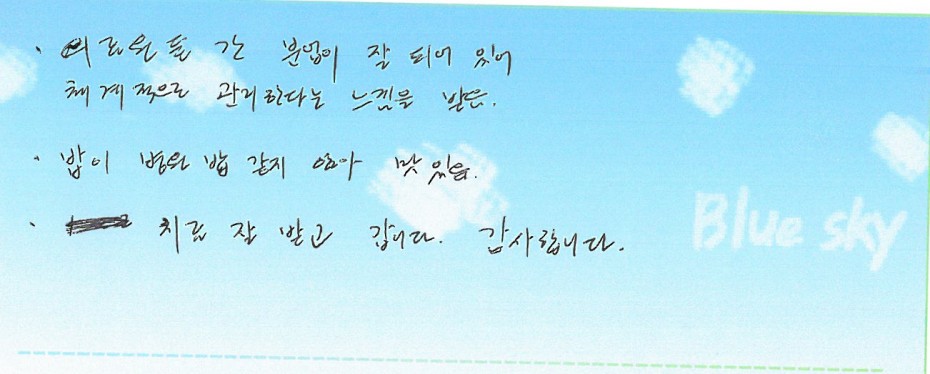 · 의료원들 간 분업이 잘 되어 있어
체계적으로 관리한다는 느낌을 받음.
· 밥이 병원 밥 같지 않아 맛있음.
· 치료 잘 받고 갑니다. 감사합니다.
Blue sky